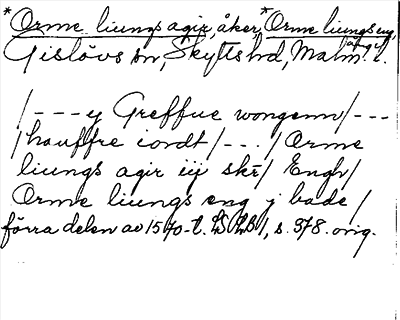 *Orme liungs agir, åker, *Orme liungs eng,
äng i
Gislövs sn, Skytts hd, Malm. l.
/---y Greffue wongenn/---
/hauffre iordt/---/Orme
liungs agir iij skr/ Engh/
Orme liungs eng j bade/
förra delen av 1570-t. LSLB1, s. 378. orig.